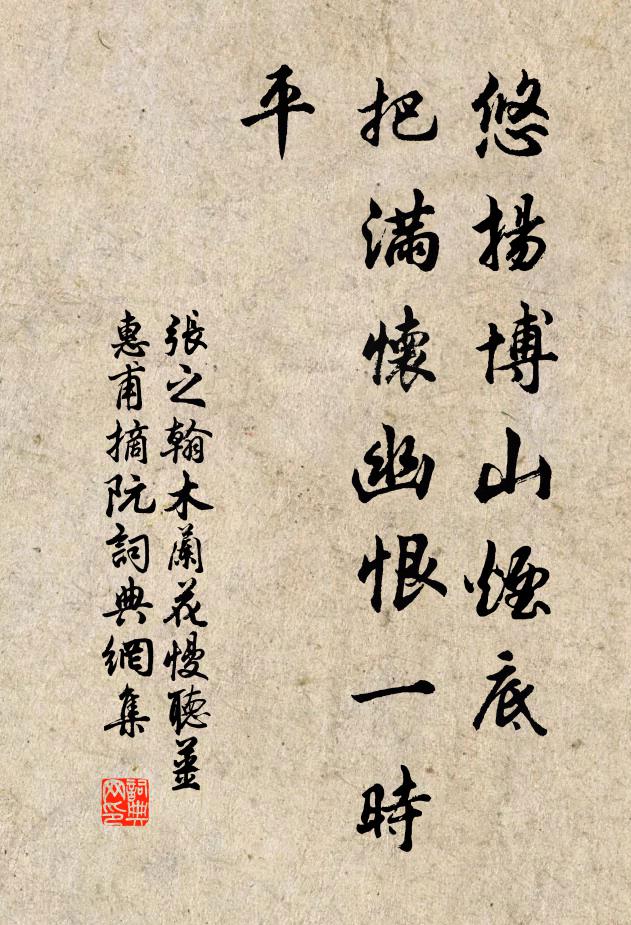 悠揚博山煙底
把滿懷幽恨一時
平
張之翰木蘭花慢聽姜
惠甫摘阮詞典網集
詞典
网印